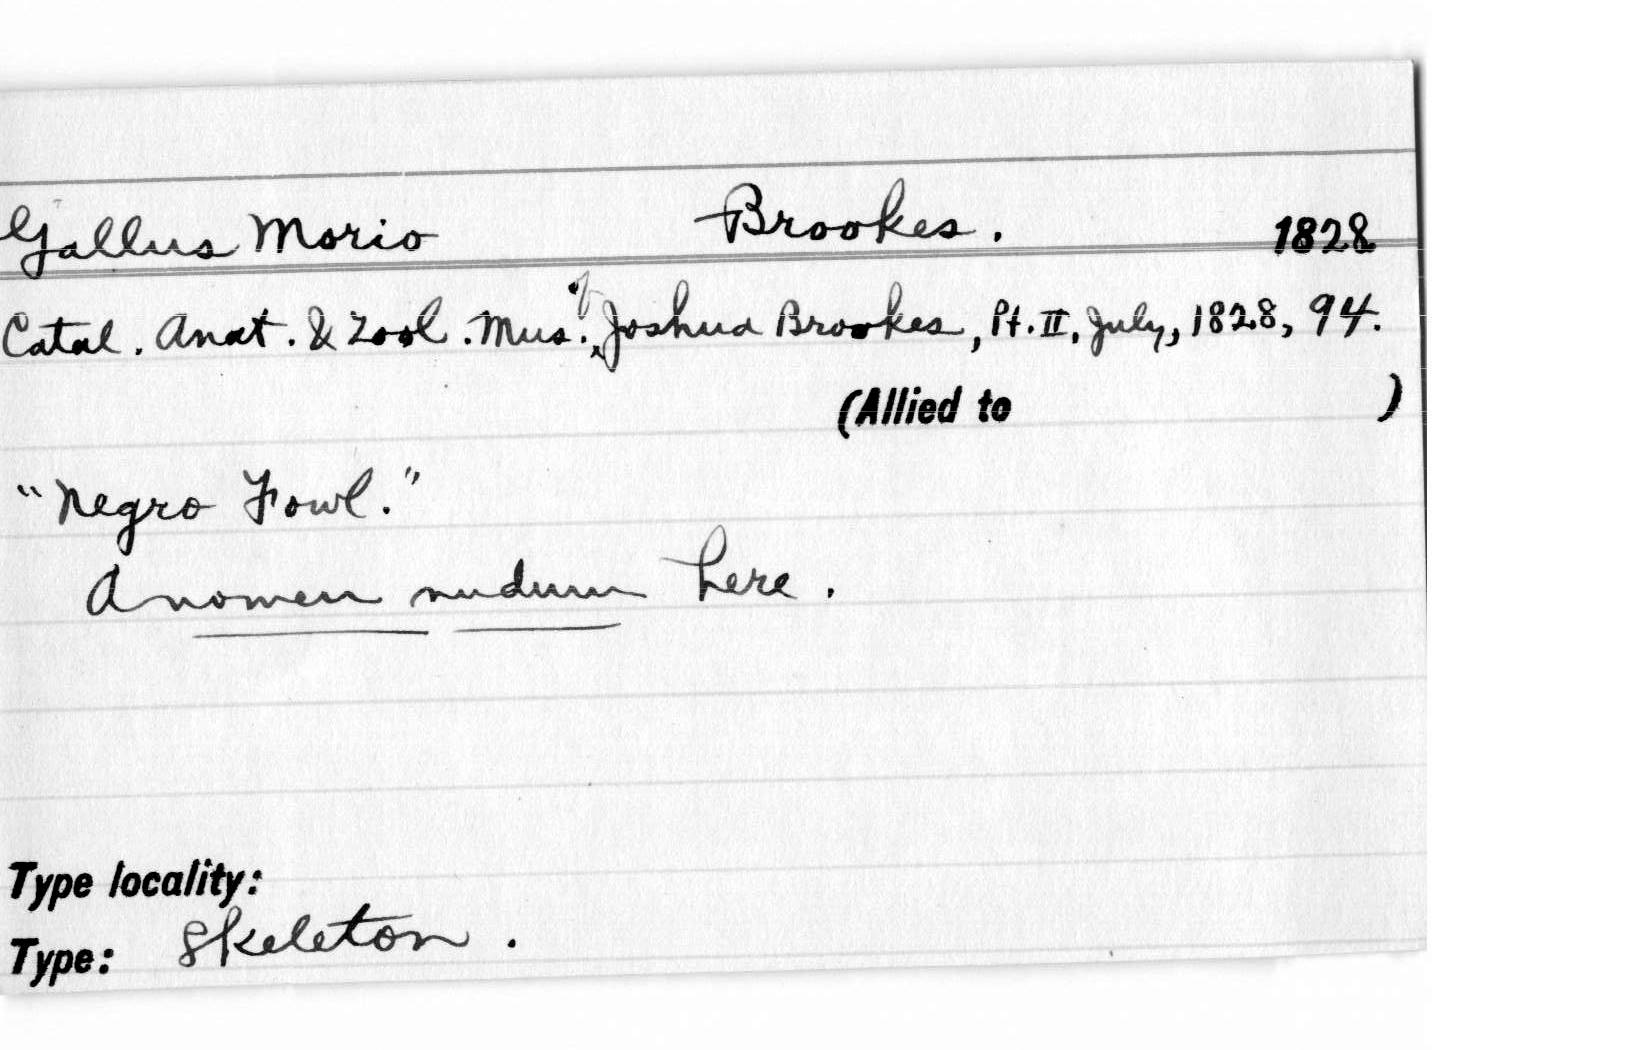 Gallus Morio Brookes. 1828
Catal. Anat. & Zool. Mus. of Joshua Brookes, Pt. II, July, 1828, 94.
(Allied to )
"Negro Fowl."
A nomen nudum here.
Type locality:
Type: Skeleton.